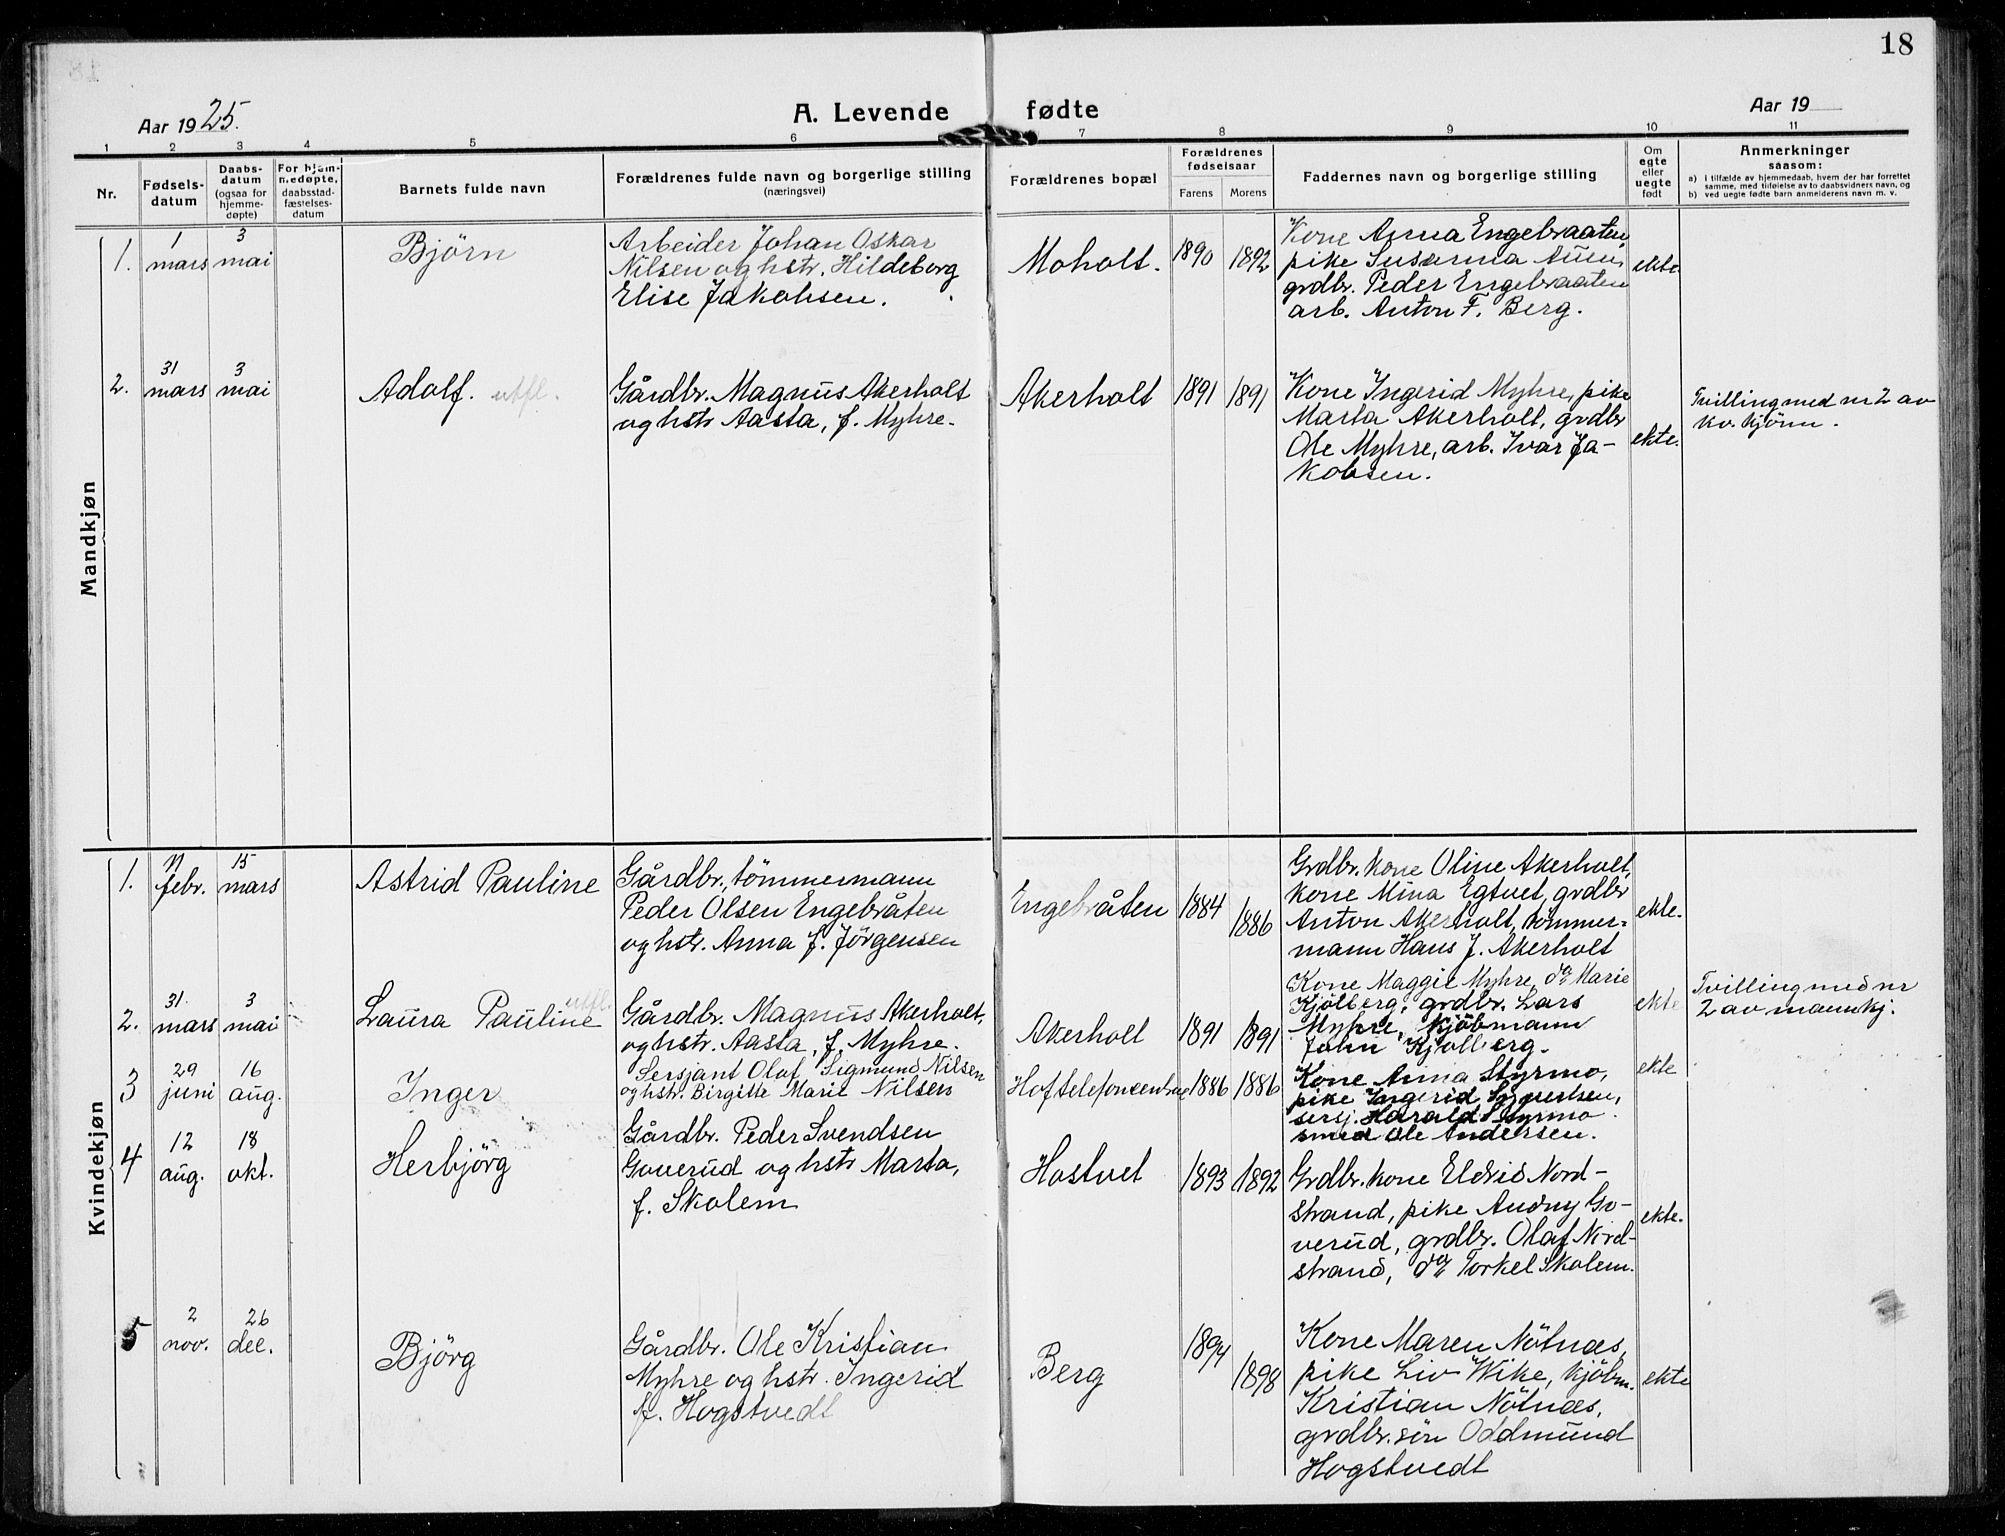 18
Aar 1925.
A. Levende fødte
Aar 19
1 2 3 4 5 6 7 8 9 10 11
Nr.
Fødsels-
datum
Daabs-
datum
(ogsaa for
hjemme-
døpte)
For hjem-
medøpte,
daabsstad-
fæstelses-
datum
Barnets fulde navn
Forældrenes fulde navn og borgerlige stilling
(næringsvei)
Forældrenes bopæl
Forældrenes
fødselsaar
Farens Morens
Faddernes navn og borgerlige stilling
Om
egte
eller
uegte
født
Anmerkninger
saasom:
a) i tilfælde av hjemmedaab, hvem der har forrettet
samme, med tilføielse av to daabsvidners navn, og
b) ved uegte fødte barn anmelderens navn m. v.
Mandkjøn
1.
1
mars
3
mai
Bjørn
Arbeider Johan Oskar
Nilsen og hstr. Hildeborg
Elise Jakobsen.
Moholt.
1890
1892
Kone Anna Engebraaten,
pike Susanna
grdbr. Peder Engebraaten
arb. Anton F. Berg.
ekte
2.
31
mars
3
mai
Adolf. utfl.
Gårdbr. Magnus Akerholt
og hstr Aasta, f. Myhre.
Akerholt
1891
1891
Kone Ingerid Myhre, pike
Marta Akerholt, grdbr
Ole Myhre, arb. Ivar Ja-
kobsen.
ekte.
Tvilling med nr 2 av
kv. kjønn.
Kvindekjøn
1.
febr.
15
mars
Astrid Pauline
Gårdbr., tömmermann
Peder Olsen Engebråten
og hstr. Anna f. Jörgensen
Engebråten
1884
1886
Grdbr. kone Oline Akerholt,
kone Mina Egtvet, grdbr
Anton Akerholt, tömmer=
mann Hans J. Akerholt
ekte.
2.
31.
mars
3
mai
Laura Pauline utfl.
Gårdbr. Magnus Akerholt,
og hstr. Aasta, f. Myhre.
Akerholt
1891
1891
Kone Maggie Myhre, do Marie
Kjölberg, grdbr. Lars
Myhre, kjöbmann
John Kjölberg.
ekte
Tvilling med nr
2 av mannkj.
3
29
juni
16
aug.
Inger
Sersjant Olaf Sigmund Nilsen
og hstr. Birgitte Marie Nilsen
Hof telefoncentral
1886
1886
Kone Anna Styrmo,
pike Ingerid Syvertsen,
sersj. Harald Styrmo
smed Ole Andersen.
ekte
4
12
aug.
18
okt.
Herbjörg
Gårdbr. Peder Svendsen
Goverud og hstr Marta,
f. Skolem
Hostvet
1893
1892
Grdbr. kone Eldrid Nord-
strand, pike Audny Go-
verud, grdbr. Olaf Nord-
strand, do Torkel Skolem.
ekte.
5
2
nov.
26
dec.
Björg
Gårdbr. Ole Kristian
Myhre og hstr. Ingerid
f. Hogstvedt
Berg
1894
1898
Kone Maren Nötnæs,
pike Liv Wike, kjöbm.
Kristian Nötnæs,
grdbr. sön Oddmund
Hogstvedt
ekte